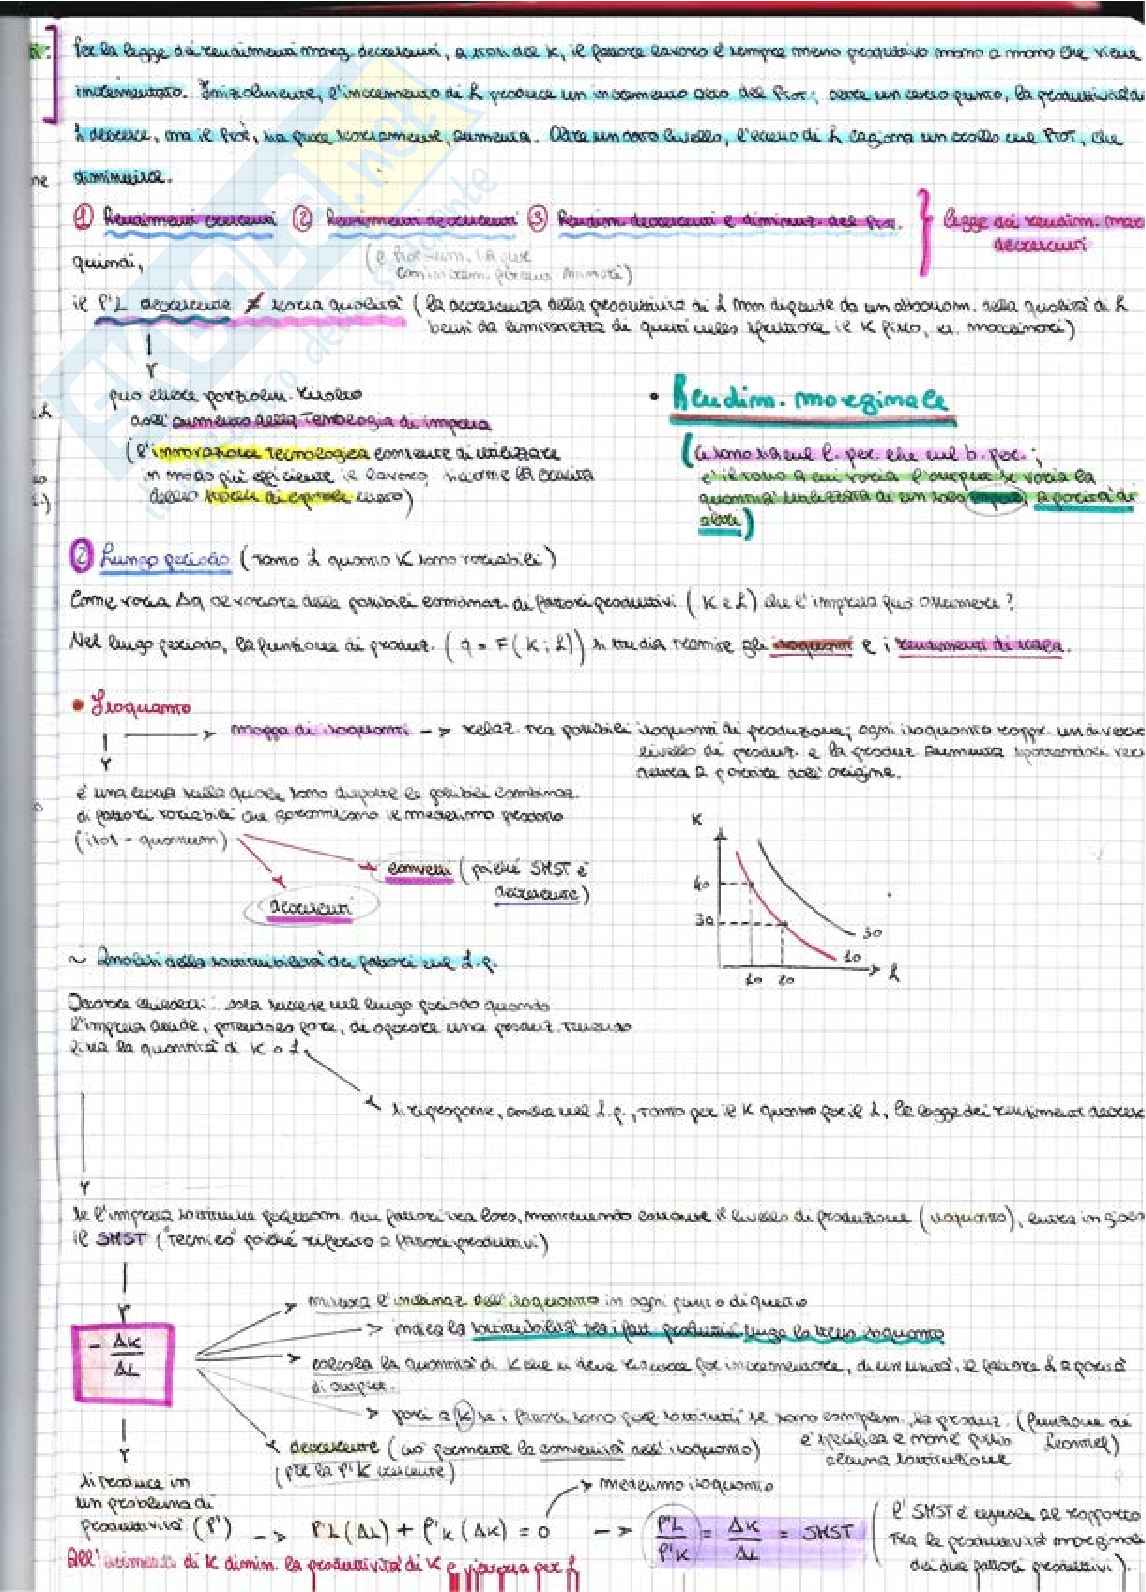 Per la legge dei rendimenti marg. decrescenti, a del K, il fattore lavoro è sempre meno produttivo mano a mano che viene
incrementato. Inizialmente, l'incremento di L produce un incremento del ProT; oltre un certo punto, la produttività di
L decresce, ma il ProT, aumenta. Oltre un dato livello, l'eccesso di L cagiona un crollo nel ProT, che
diminuisce.
① Rendimenti crescenti ② Rendimenti decrescenti ③ Rendim. decrescenti e diminuz. del Pro.
legge dei rendim. mar
decrescenti
quindi,
il P'L decrescente ≠ scarsa qualità (la decrescenza della produttività di L non dipende da un abbassam. della qualità di L
bensì da di questi nello sfruttare il K fisso, es. macchinari)
può essere parzialm. risolto
dall'aumento della tecnologia di impresa
(l'innovazione tecnologica consente di utilizzare
in modo più efficiente il lavoro, siccome la crescita
dello stock di capitale)
• Rendim. marginale
(ce sono sia nel l. per. che nel b. per.;
è il tasso a cui varia l'output se varia la
quantità utilizzata di un solo input, a parità di
altre)
② Lungo periodo (tanto L quanto K sono variabili)
Come varia Δq al variare delle possibili combinaz. di fattori produttivi (K e L) che l'impresa può assumere?
Nel lungo periodo, la funzione di produz. (q = F(K; L)) si studia tramite gli isoquanti e i rendimenti di scala.
• Isoquanto
mappa di isoquanti → relaz. tra possibili isoquanti di produzione; ogni isoquanto rappr. un diverso
livello di produz. e la produz. aumenta spostandosi verso
destra a partire dall'origine.
è una curva sulla quale sono disposte le possibili combinaz.
di fattori variabili che garantiscono il medesimo prodotto
(isos - quantum)
convessi (poiché SMST è
decrescente)
decrescenti
K
40
30
30
10
10 20
L
~ Analisi della sostituibilità dei fattori nel l.p.
cosa succede nel lungo periodo quando
l'impresa decide, potendolo fare, di operare una produz. tenendo
fissa la quantità di K o L
si ripropone, anche nel l.p., tanto per il K quanto per il L, la legge dei rendimenti decresc
Se l'impresa sostituisce dei fattori tra loro, mantenendo costante il livello di produzione (isoquanto), entra in gioco
il SMST ("tecnico" poiché riferito a fattori produttivi)
- ΔK/ΔL
misura l'inclinaz. dell'isoquanto in ogni punto di questo
indica la sostituibilità tra i fatt. produttivi lungo lo stesso isoquanto
calcola la quantità di K che si deve ridurre per incrementare, di un'unità, il fattore L a parità
di output.
pari a K se i fattori sono perf. sostituti; se sono complem., la produz. (funzione di
è specifica e non è possib. Leontief)
alcuna sostituzione
decrescente (ciò permette la convessità dell'isoquanto)
(per la P'K crescente)
si traduce in
un problema di
produttività (P')
→ P'L(ΔL) + P'K(ΔK) = 0 → P'L/P'K = ΔK/ΔL = SMST
medesimo isoquanto
(l'SMST è uguale al rapporto
tra le produttività marginali
dei due fattori produttivi).
All'aumento di K dimin. la produttività di K e viceversa per L